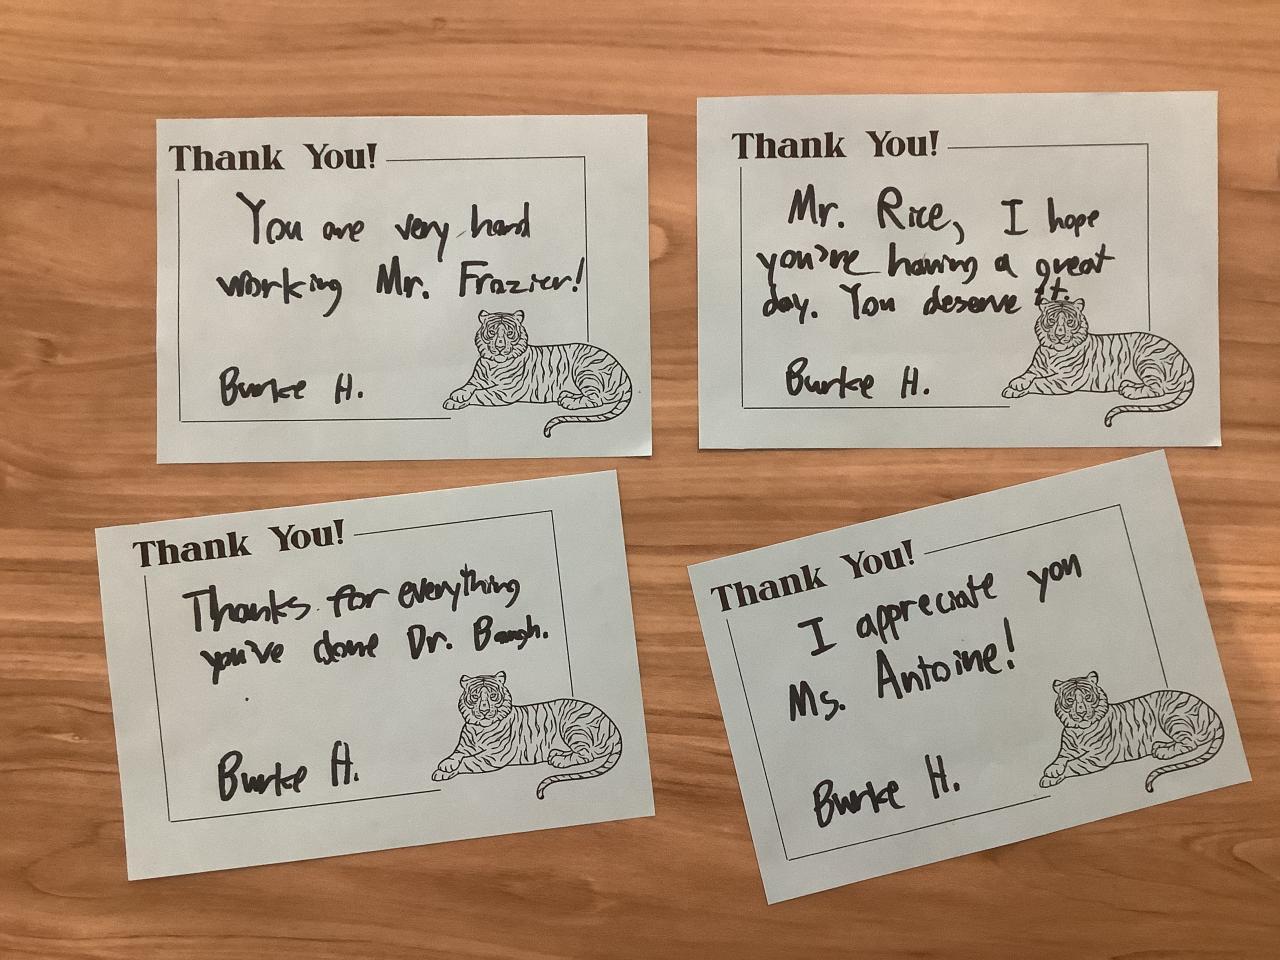 Thank You!
You are very hard
working Mr. Frazier!
Burke H.
Thank You!
Mr. Rice, I hope
you're having a great
day. You deserve it.
Burke H.
Thank You!
Thanks for everything
you've done Dr. Baugh.
Burke H.
Thank You!
I appreciate you
Ms. Antoine!
Burke H.